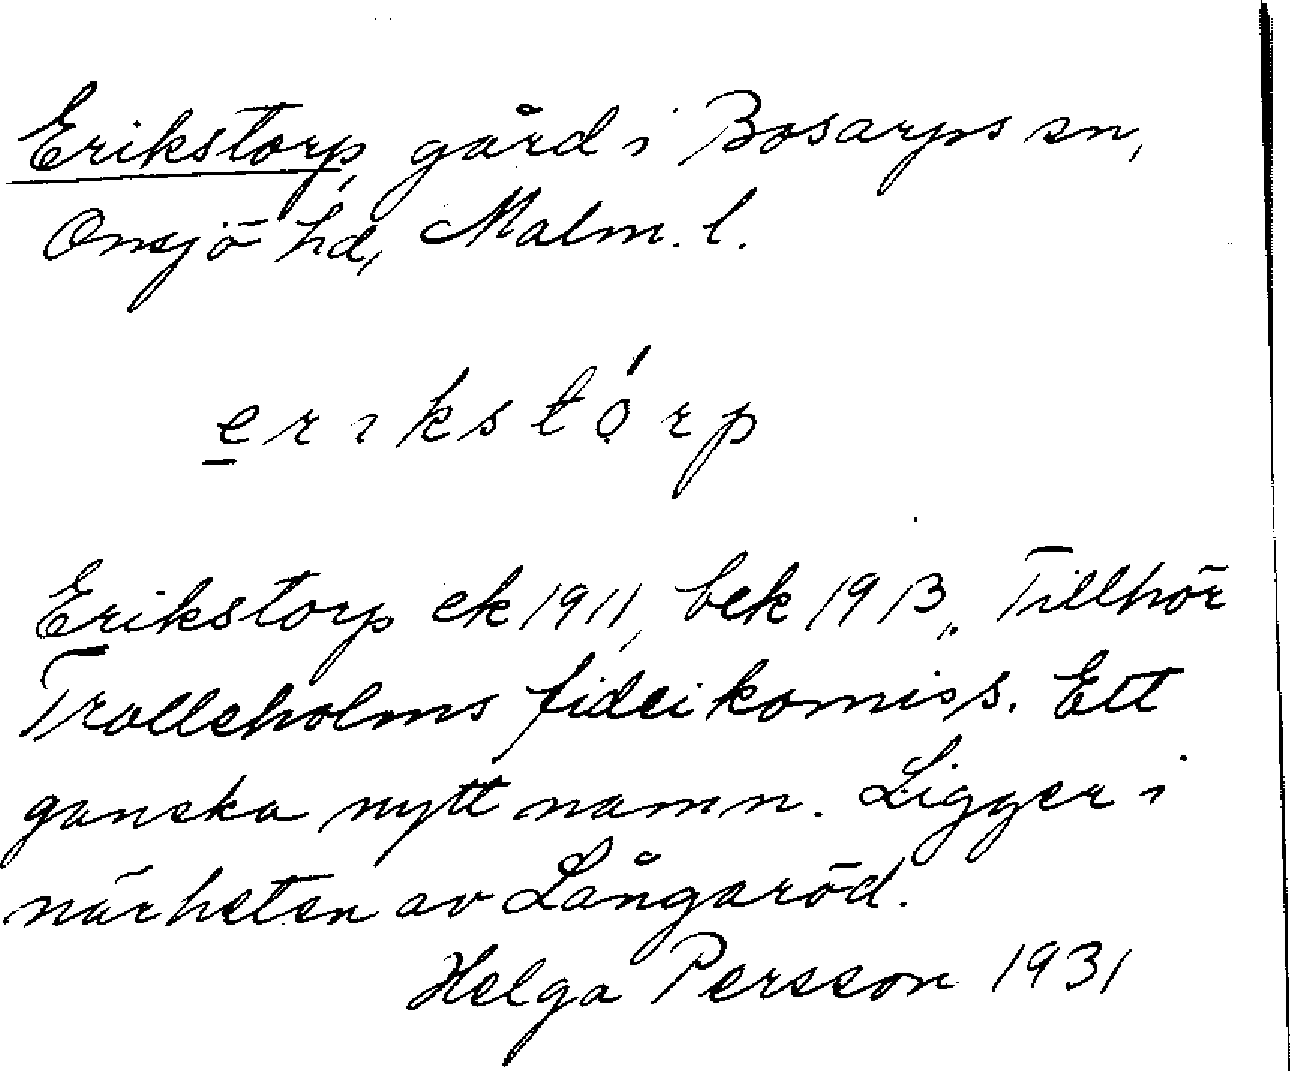 Erikstorp, gård i Bosarps sn,
Onsjö hd, Malm. l.
erikstọ́rp
Erikstorp ek 1911, bek 1913. Tillhör
Trolleholms fideikomiss. Ett
ganska nytt namn. Ligger i
närheten av Långaröd.
Helga Persson 1931